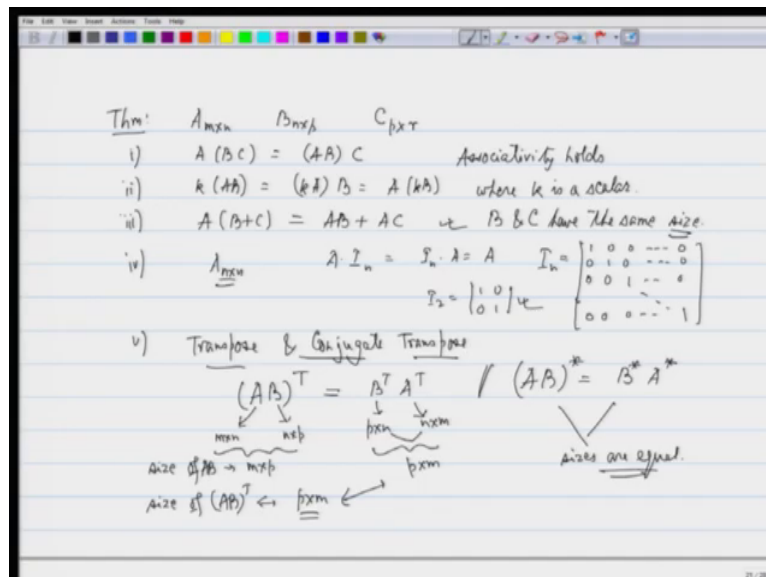 File Edit View Insert Actions Tools Help
Thm: A_{m×n} B_{n×p} C_{p×r}
i) A(BC) = (AB)C Associativity holds
ii) k(AB) = (kA)B = A(kB) where k is a scalar.
iii) A(B+C) = AB + AC B & C have the same size.
iv) A_{m×n} A·I_n = I_n·A = A I_n = [1 0 0 --- 0
0 1 0 --- 0
0 0 1 -- 0
0 0 0 -- 1]
I_2 = [1 0
0 1]
v) Transpose & Conjugate Transpose
(AB)^T = B^T A^T / (AB)^* = B^* A^*
m×n n×p p×n n×m
size of AB → m×p p×m sizes are equal.
size of (AB)^T ↔ p×m